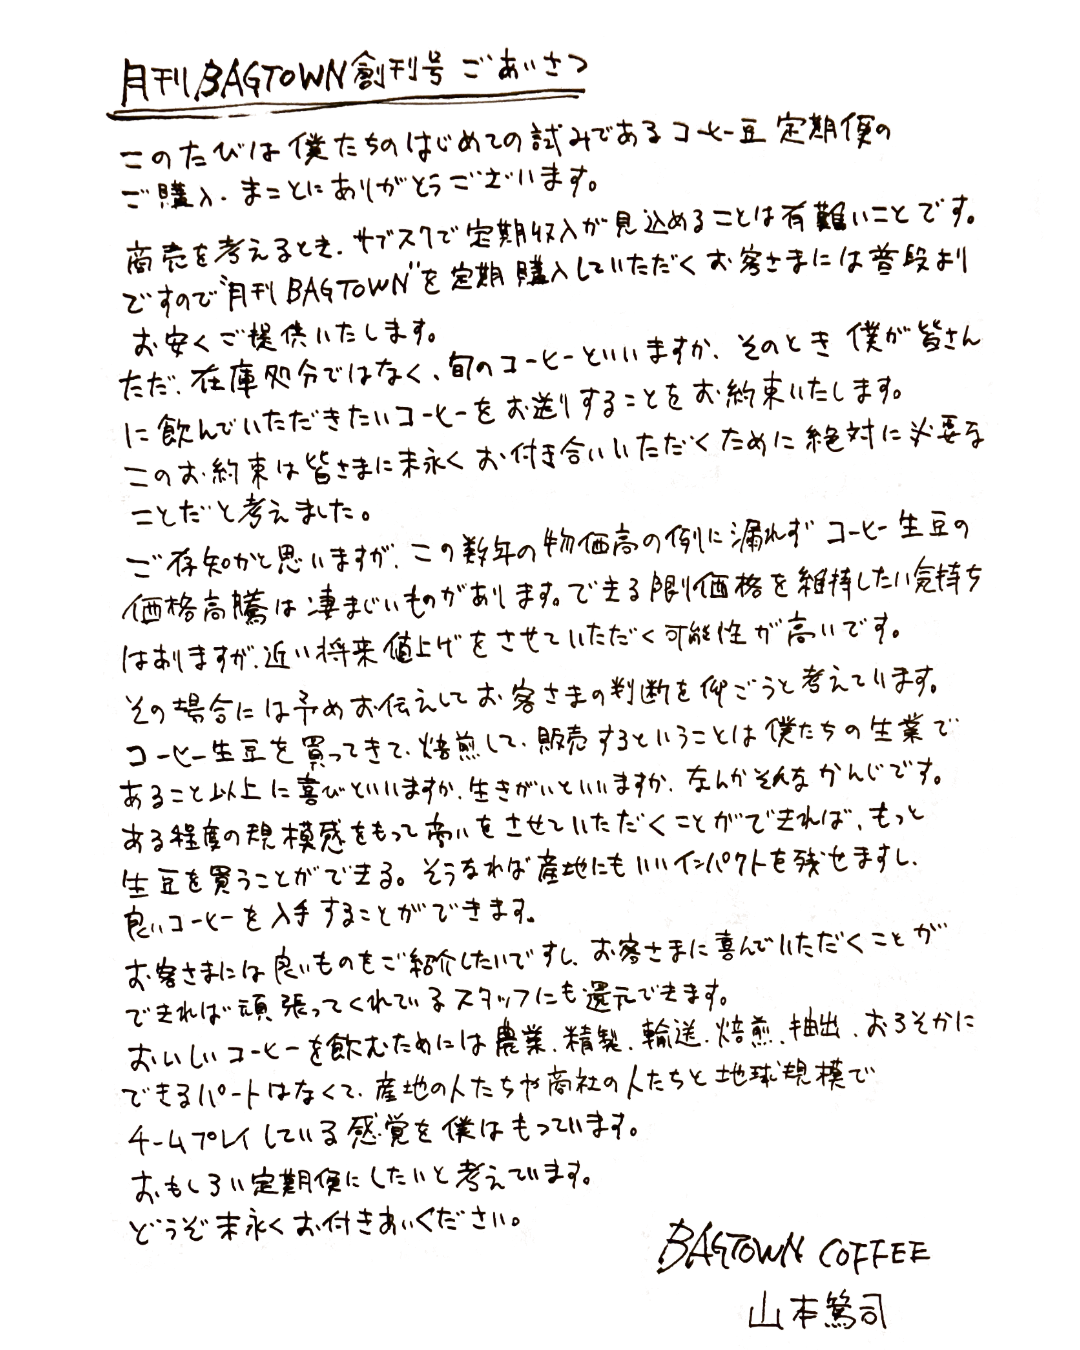 月刊BAGTOWN創刊号 ごあいさつ
このたびは僕たちのはじめての試みであるコーヒー豆定期便の
ご購入、まことにありがとうございます。
商売を考えるとき、サブスクで定期収入が見込めることは有難いことです。
ですので"月刊BAGTOWN"を定期購入していただくお客さまには普段より
お安くご提供いたします。
ただ、在庫処分ではなく、旬のコーヒーといいますか、そのとき僕が皆さん
に飲んでいただきたいコーヒーをお送りすることをお約束いたします。
このお約束は皆さまに末永くお付き合いいただくために絶対に必要な
ことだと考えました。
ご存知かと思いますが、この数年の物価高の例に漏れずコーヒー生豆の
価格高騰は凄まじいものがあります。できる限り価格を維持したい気持ち
はありますが、近い将来値上げをさせていただく可能性が高いです。
その場合には予めお伝えしてお客さまの判断を仰ごうと考えています。
コーヒー生豆を買ってきて、焙煎して、販売するということは僕たちの生業で
あること以上に喜びといいますか、生きがいといいますか、なんかそんなかんじです。
ある程度の規模感をもって商いをさせていただくことができれば、もっと
生豆を買うことができる。そうなれば産地にもいいインパクトを残せますし、
良いコーヒーを入手することができます。
お客さまには良いものをご紹介したいですし、お客さまに喜んでいただくことが
できれば頑張ってくれているスタッフにも還元できます。
おいしいコーヒーを飲むためには農業、精製、輸送、焙煎、抽出、おろそかに
できるパートはなくて、産地の人たちや商社の人たちと地球規模で
チームプレイしている感覚を僕はもっています。
おもしろい定期便にしたいと考えています。
どうぞ末永くお付きあいください。
BAGTOWN COFFEE
山本篤司